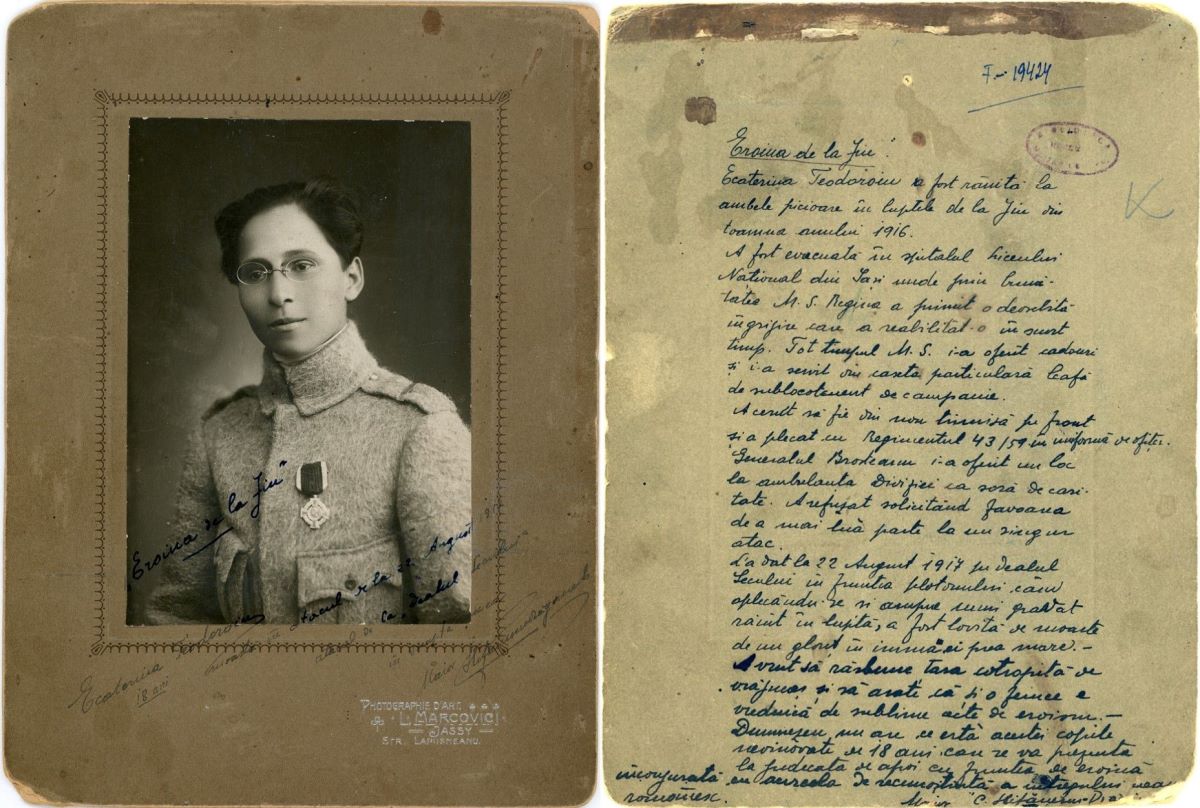 "Eroina de la Jiu"
Ecaterina Teodoroiu
18 ani
moartă în atacul de la 22 August 1917
Maior
PHOTOGRAPHIE D'ART
L. MARCOVICI
JASSY
STR. LAPUSNEANU.
I-19424
K
"Eroina de la Jiu".
Ecaterina Teodoroiu a fost rănită la
ambele picioare în luptele de la Jiu din
toamna anului 1916.
A fost evacuată în spitalul Liceului
Național din Iași unde prin bună-
tatea M. S. Regina a primit o deosebită
îngrijire care a reabilitat-o în scurt
timp. Tot timpul M. S. i-a oferit cadouri
și i-a servit din caseta particulară leafă
de sublocotenent de campanie.
A cerut să fie din nou trimisă pe front
și a plecat cu Regimentul 43/59 în uniformă de ofițer.
Generalul Broșteanu i-a oferit un loc
la ambulanta Diviziei ca soră de cari-
tate. A refuzat solicitând favoarea
de a mai lua parte la un singur
atac.
L-a dat la 22 August 1917 pe dealul
Secului în fruntea plotonului când
aplecându-se si asupra unui gradat
rănit în luptă, a fost lovită de moarte
de un glonț în inima ei prea mare.-
A vrut să răsbune țara cotropită de
vrăjmaș și să arate că și o femee e
vrednică de sublime acte de eroism.-
Dumnezeu, nu are ce ertà acestei copile
nevinovate de 18 ani care se va prezenta
la judecata de apoi cu fruntea de eroină
incongurată cu aureola de recunoștință a întregului neam
românesc.
Maior